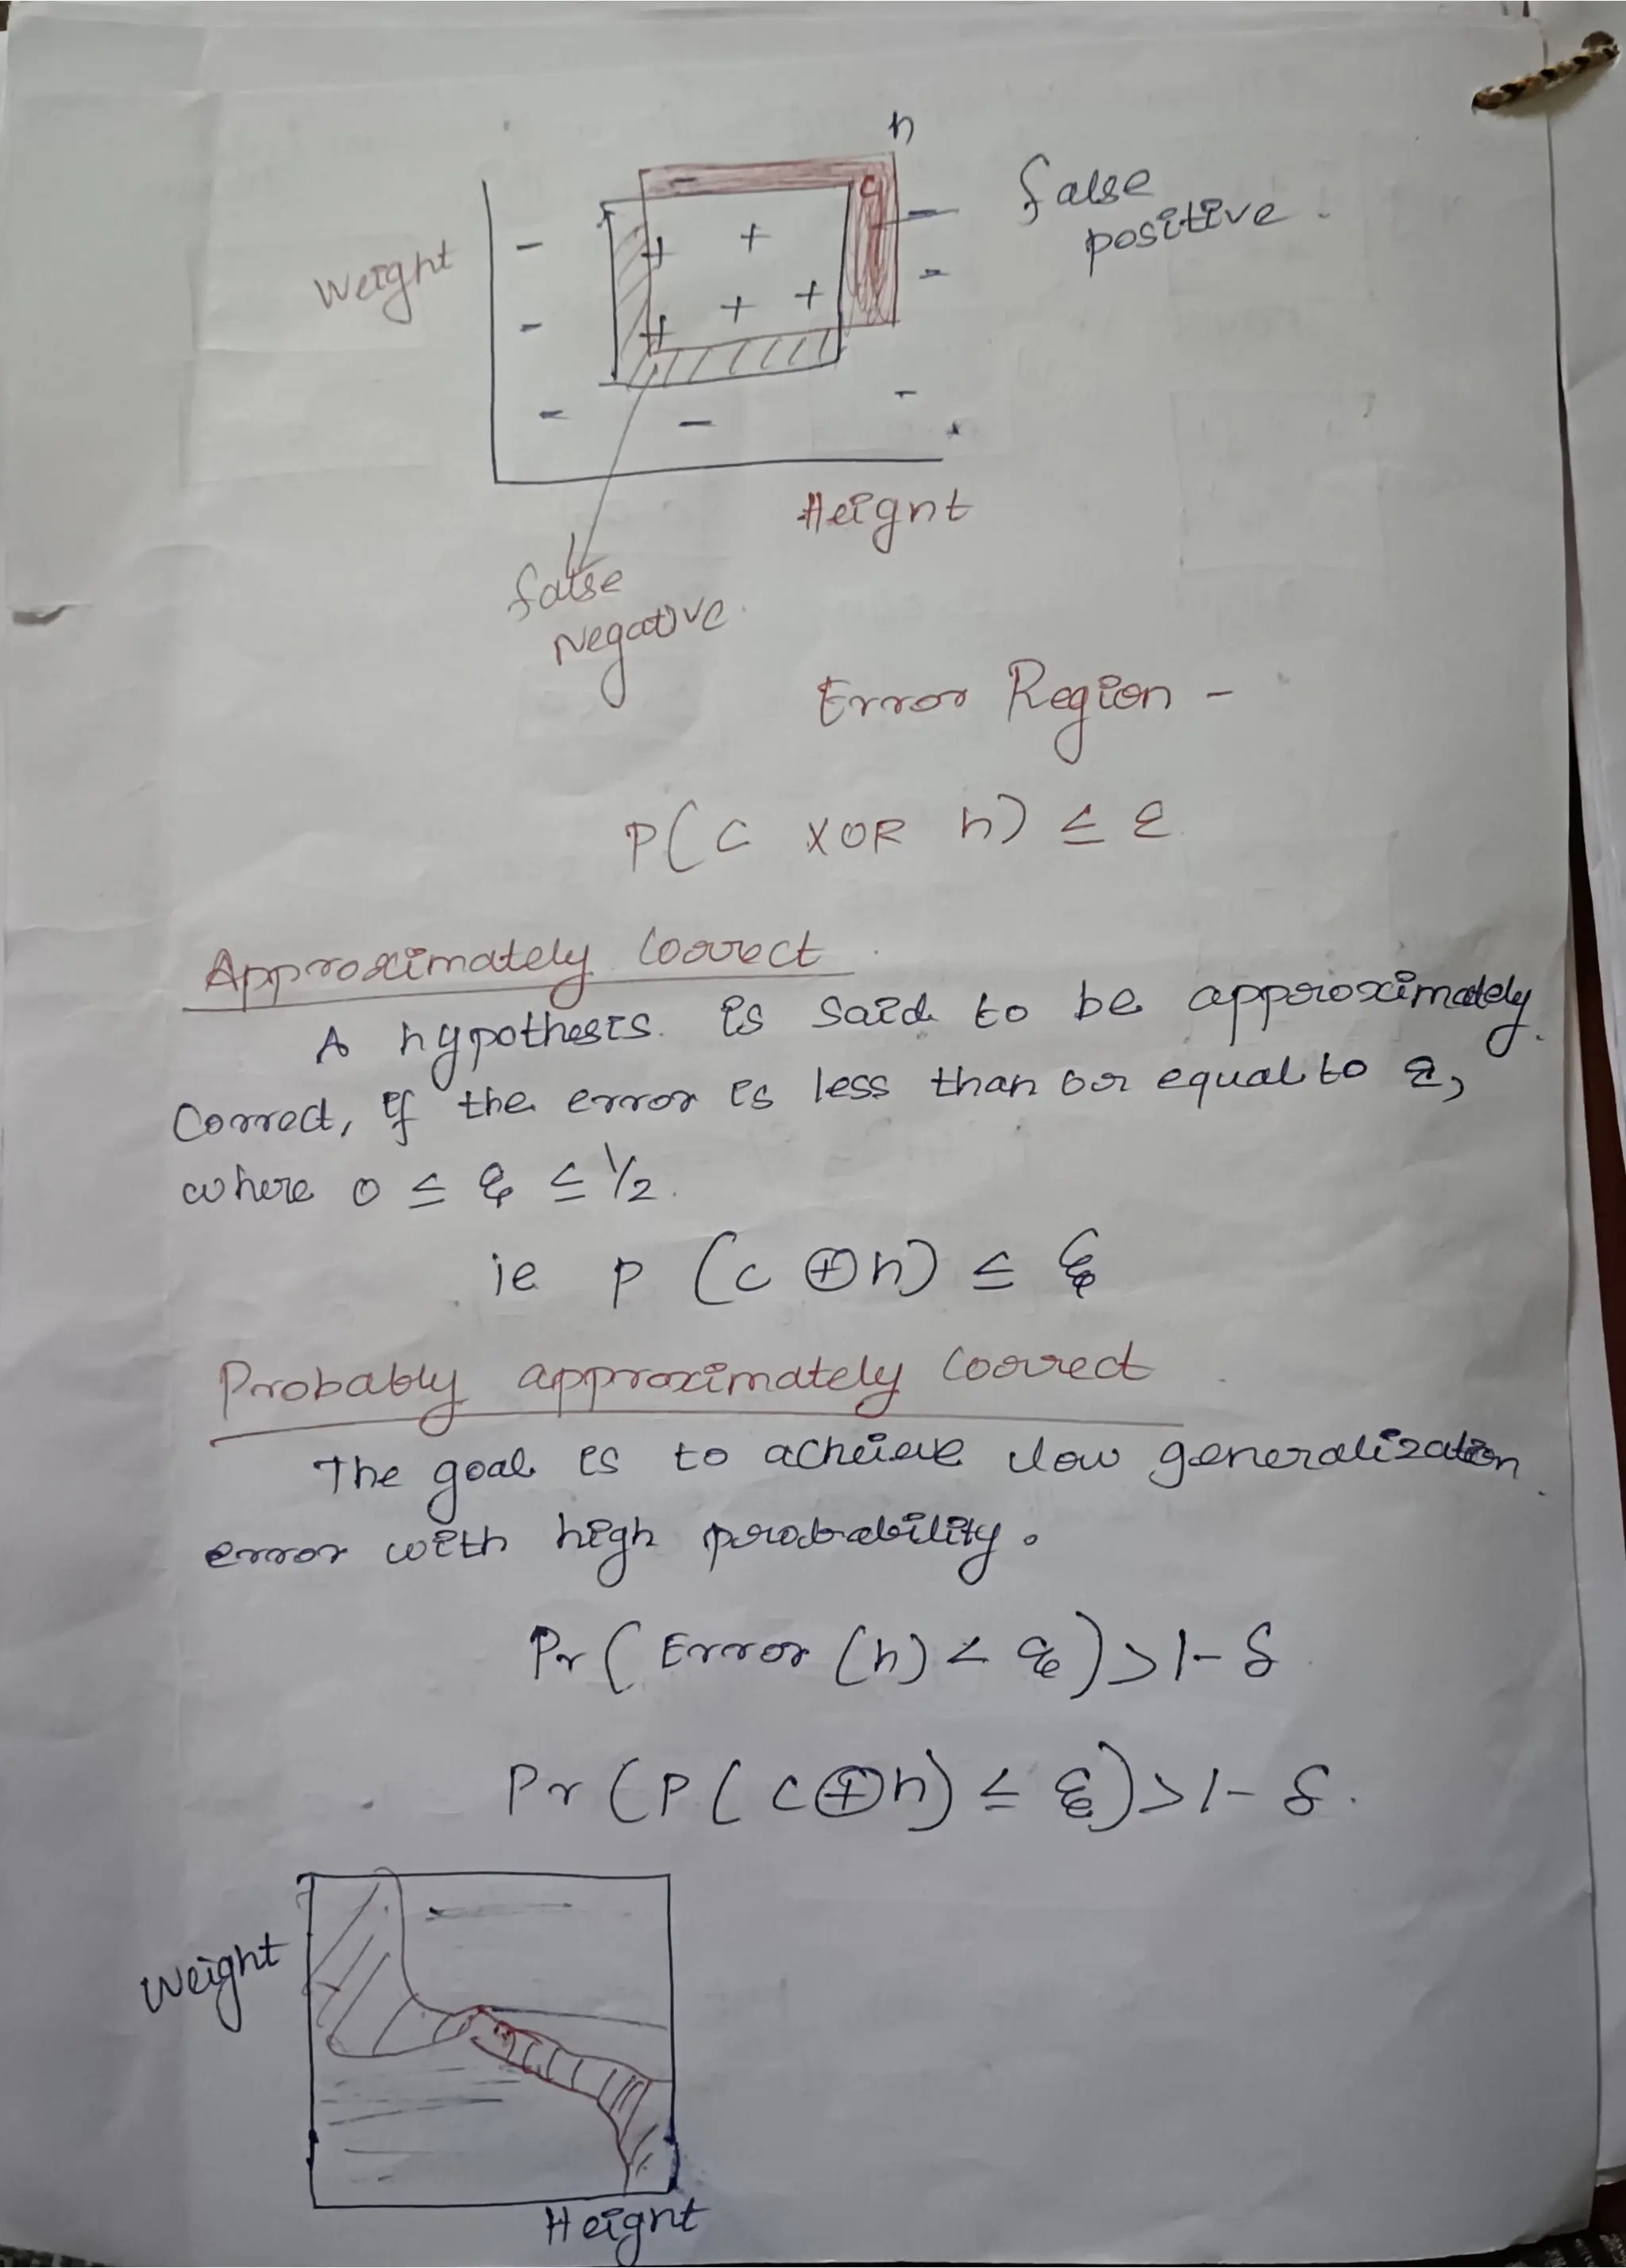 h
false
positive.
c
Weight
Height
false
Negative.
Error Region -
P(C XOR h) ≤ ε
Approximately Correct
A hypothesis is said to be approximately
Correct, if the error is less than or equal to ε,
where 0 ≤ ε ≤ 1/2.
ie P (C ⊕ h) ≤ ε
Probably approximately Correct
The goal is to acheive low generalization
error with high probability.
Pr (Error (h) < ε) > 1 - δ
Pr (P (C ⊕ h) ≤ ε) > 1 - δ.
Weight
Height